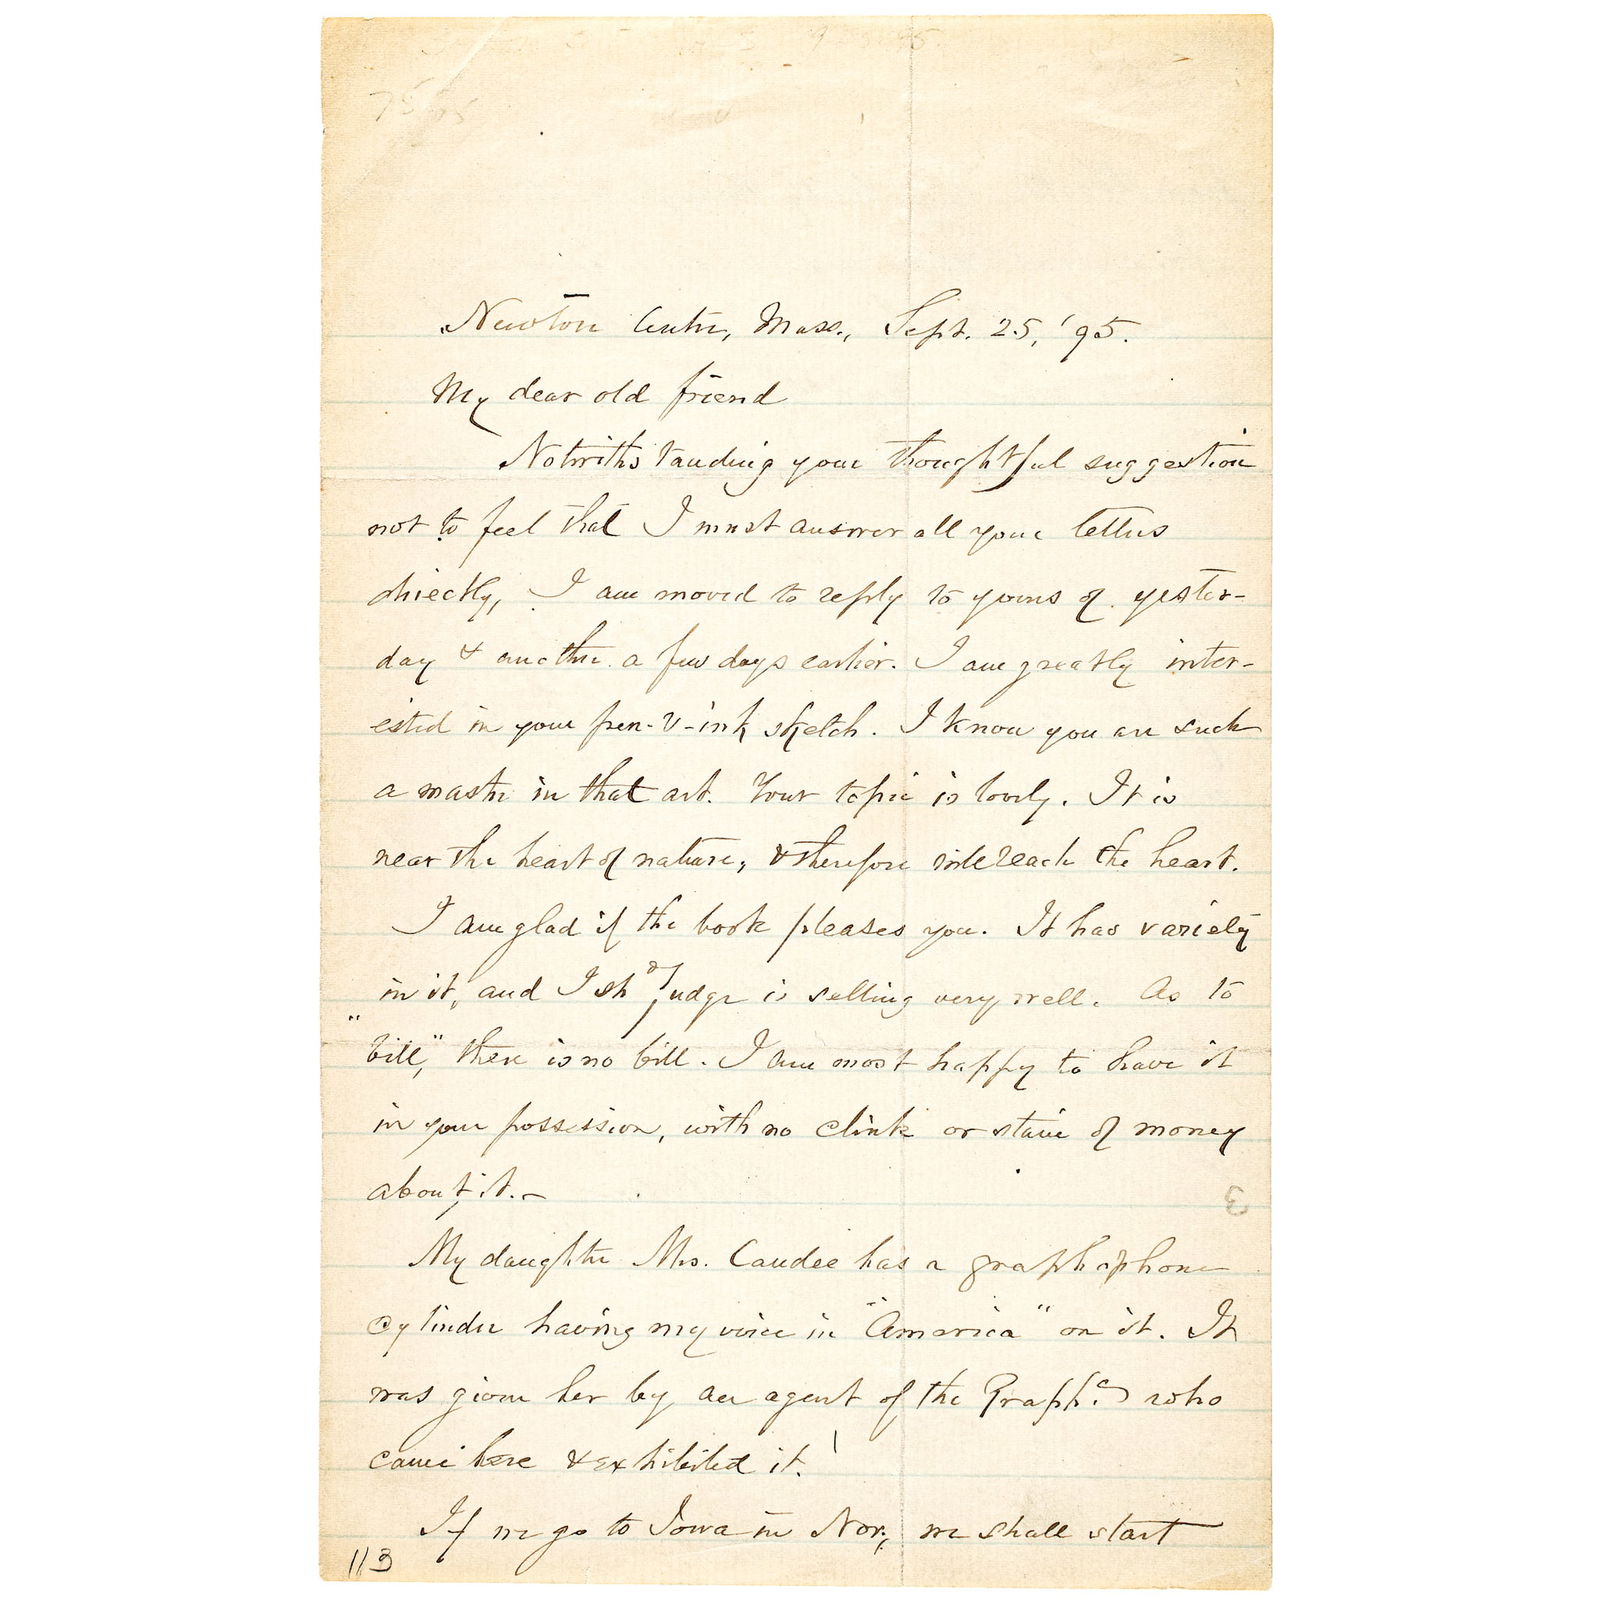 Newton Centre, Mass., Sept. 25, '95.
My dear old friend
Notwithstanding your thoughtful suggestion
not to feel that I must answer all your letters
directly, I am moved to reply to yours of yester-
day & another a few days earlier. I am greatly inter-
ested in your pen-&-ink sketch. I know you are such
a master in that art. Your topic is lovely. It is
near the heart of nature, & therefore will reach the heart.
I am glad if the book pleases you. It has variety
in it, and I sh d judge is selling very well. As to
"bill", there is no bill. I am most happy to have it
in your possession, with no clink or stain of money
about it. –
My daughter Mrs. Candee has a graphophone
cylinder having my voice in "America" on it. It
was given her by an agent of the Graph.c who
came here & exhibited it!
If we go to Iowa in Nov., we shall start
113
3